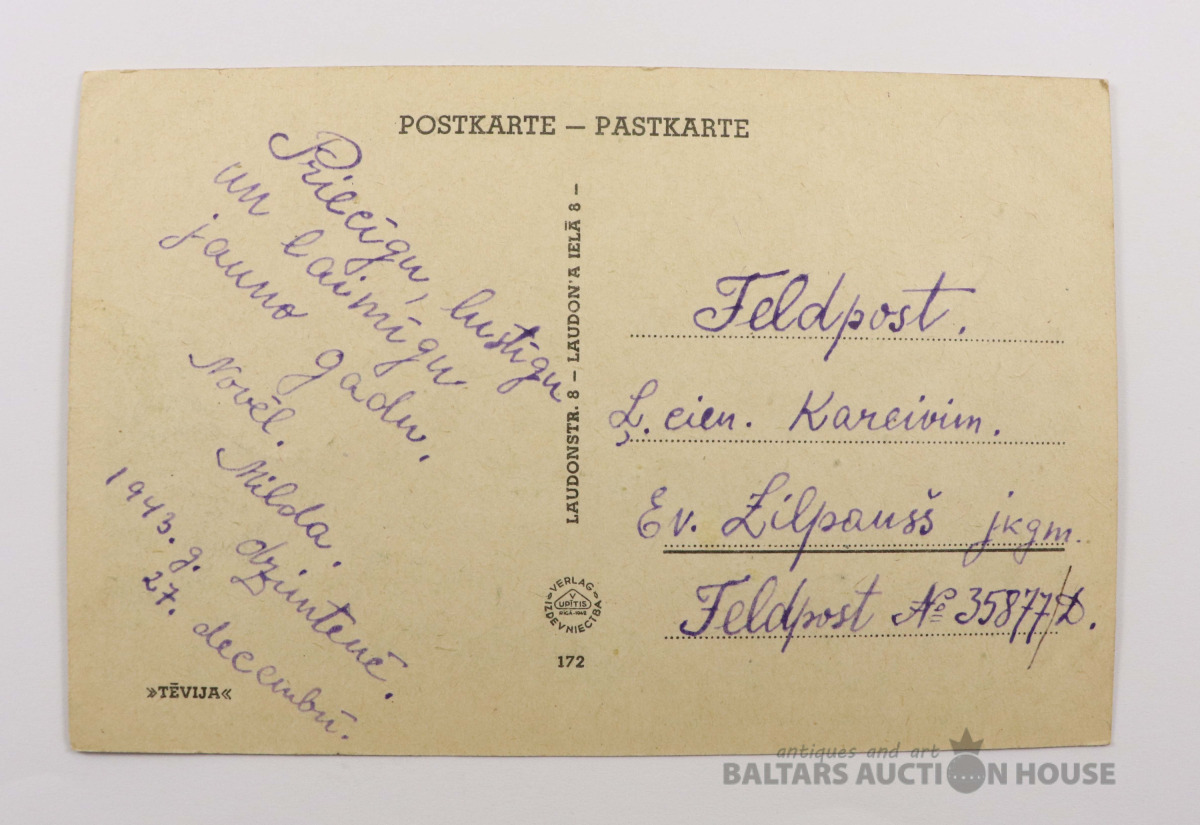 POSTKARTE — PASTKARTE
Priecīgu, lustīgu
un laimīgu
jauno gadu.
Novēl.
Milda.
dzimtenē.
1943. g.
27. decembrī.
»TĒVIJA«
LAUDONSTR. 8 — LAUDON'A IELĀ 8 —
VERLAG
V
UPĪTIS
RĪGĀ-1942
IZDEVNIECTBA
172
Feldpost.
Ļ. cien. Kareivim.
Ev. Zilpaušs jkgm.
Feldpost № 35877/D.
antiques and art
BALTARS AUCTION HOUSE